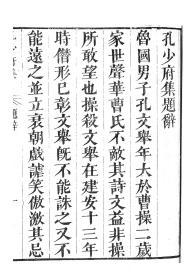 孔少府集題辭
魯國男子孔文舉年大於曹操二歲
家世聲華曹氏不敵其詩文益非操
所敢望也操殺文舉在建安十三年
時僭形已彰文舉旣不能誅之又不
能遠之並立衰朝戲謔笑傲激其忌